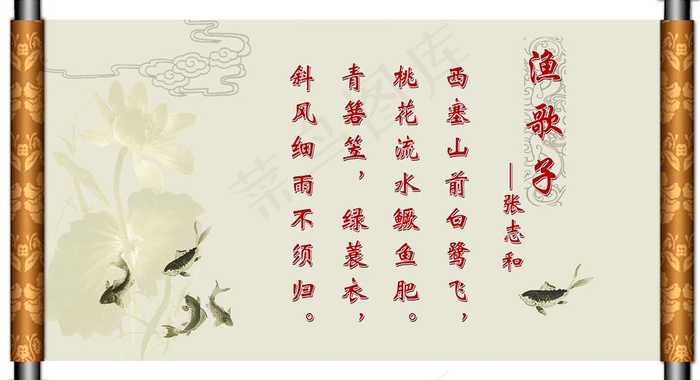 渔歌子
—张志和
西塞山前白鹭飞，
桃花流水鳜鱼肥。
青箬笠，绿蓑衣，
斜风细雨不须归。